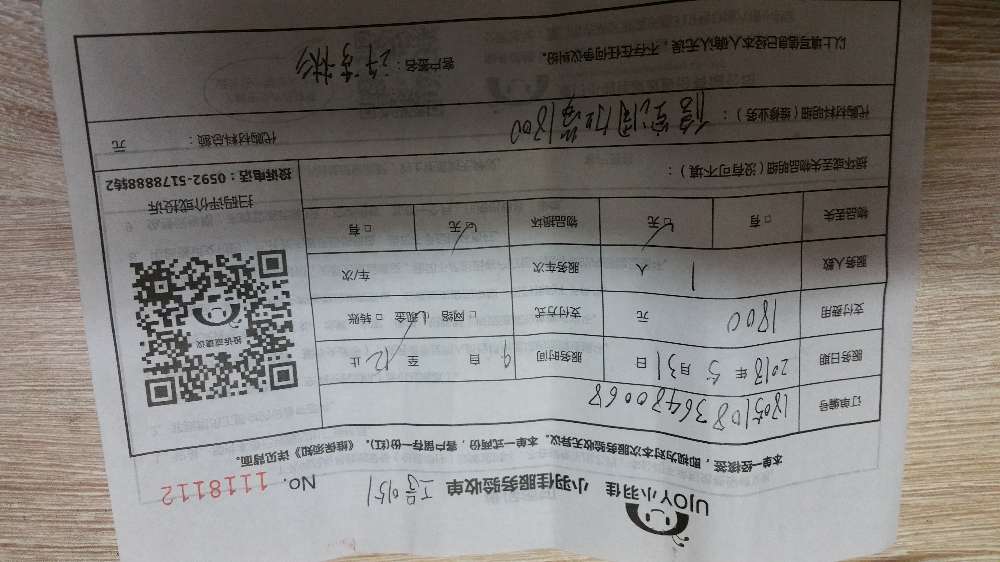 UJOY小羽佳 小羽佳服务验收单 工号 151 NO. 1118112
本单一经核签,即视为对本次服务验收无异议。本单一式两份,客户留存一份(红)。《维保须知》详见背面。
订单编号 180510836480068
服务日期 2018 年 5 月 31 日 服务时间 9 自 至 12 止
支付费用 1800 元 支付方式 □ 网络 ☑ 现金 □ 转账
服务人数 1 人 服务车次 车/次
物品丢失 □ 有 ☑ 无 物品损坏 ☑ 无 □ 有
投诉或建议
扫码评价或投诉
投诉电话:0592-5178888转2
损坏或丢失物品明细(没有可不填):
代购材料明细(维修业务): 空调加 1800
代购材料总额: 元
以上填写信息已经本人确认无误,不存在任何争议纠纷。
客户签名: